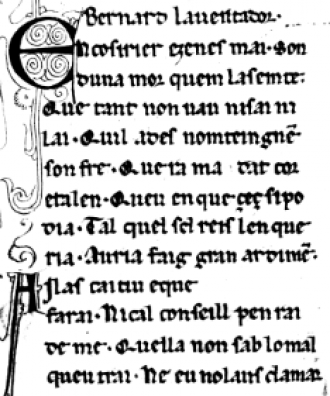 Bernard lauentador.
Encosirier ⁊ enes mai. Son
duna mor quem lasemte:
Que tant non uau nisai ni
lai. Quil ades nomteingnē
son fre. Que ra ma dat cor
etalen. Queu enque ses sipo
dia. Tal quel sel reis lenque
ria. Auria faig gran ardimē.
Alas caitiu eque
farai. Nical conseill penrai
de me. Quella non sab lomal
queu trai. Ne eu nolaus clamar